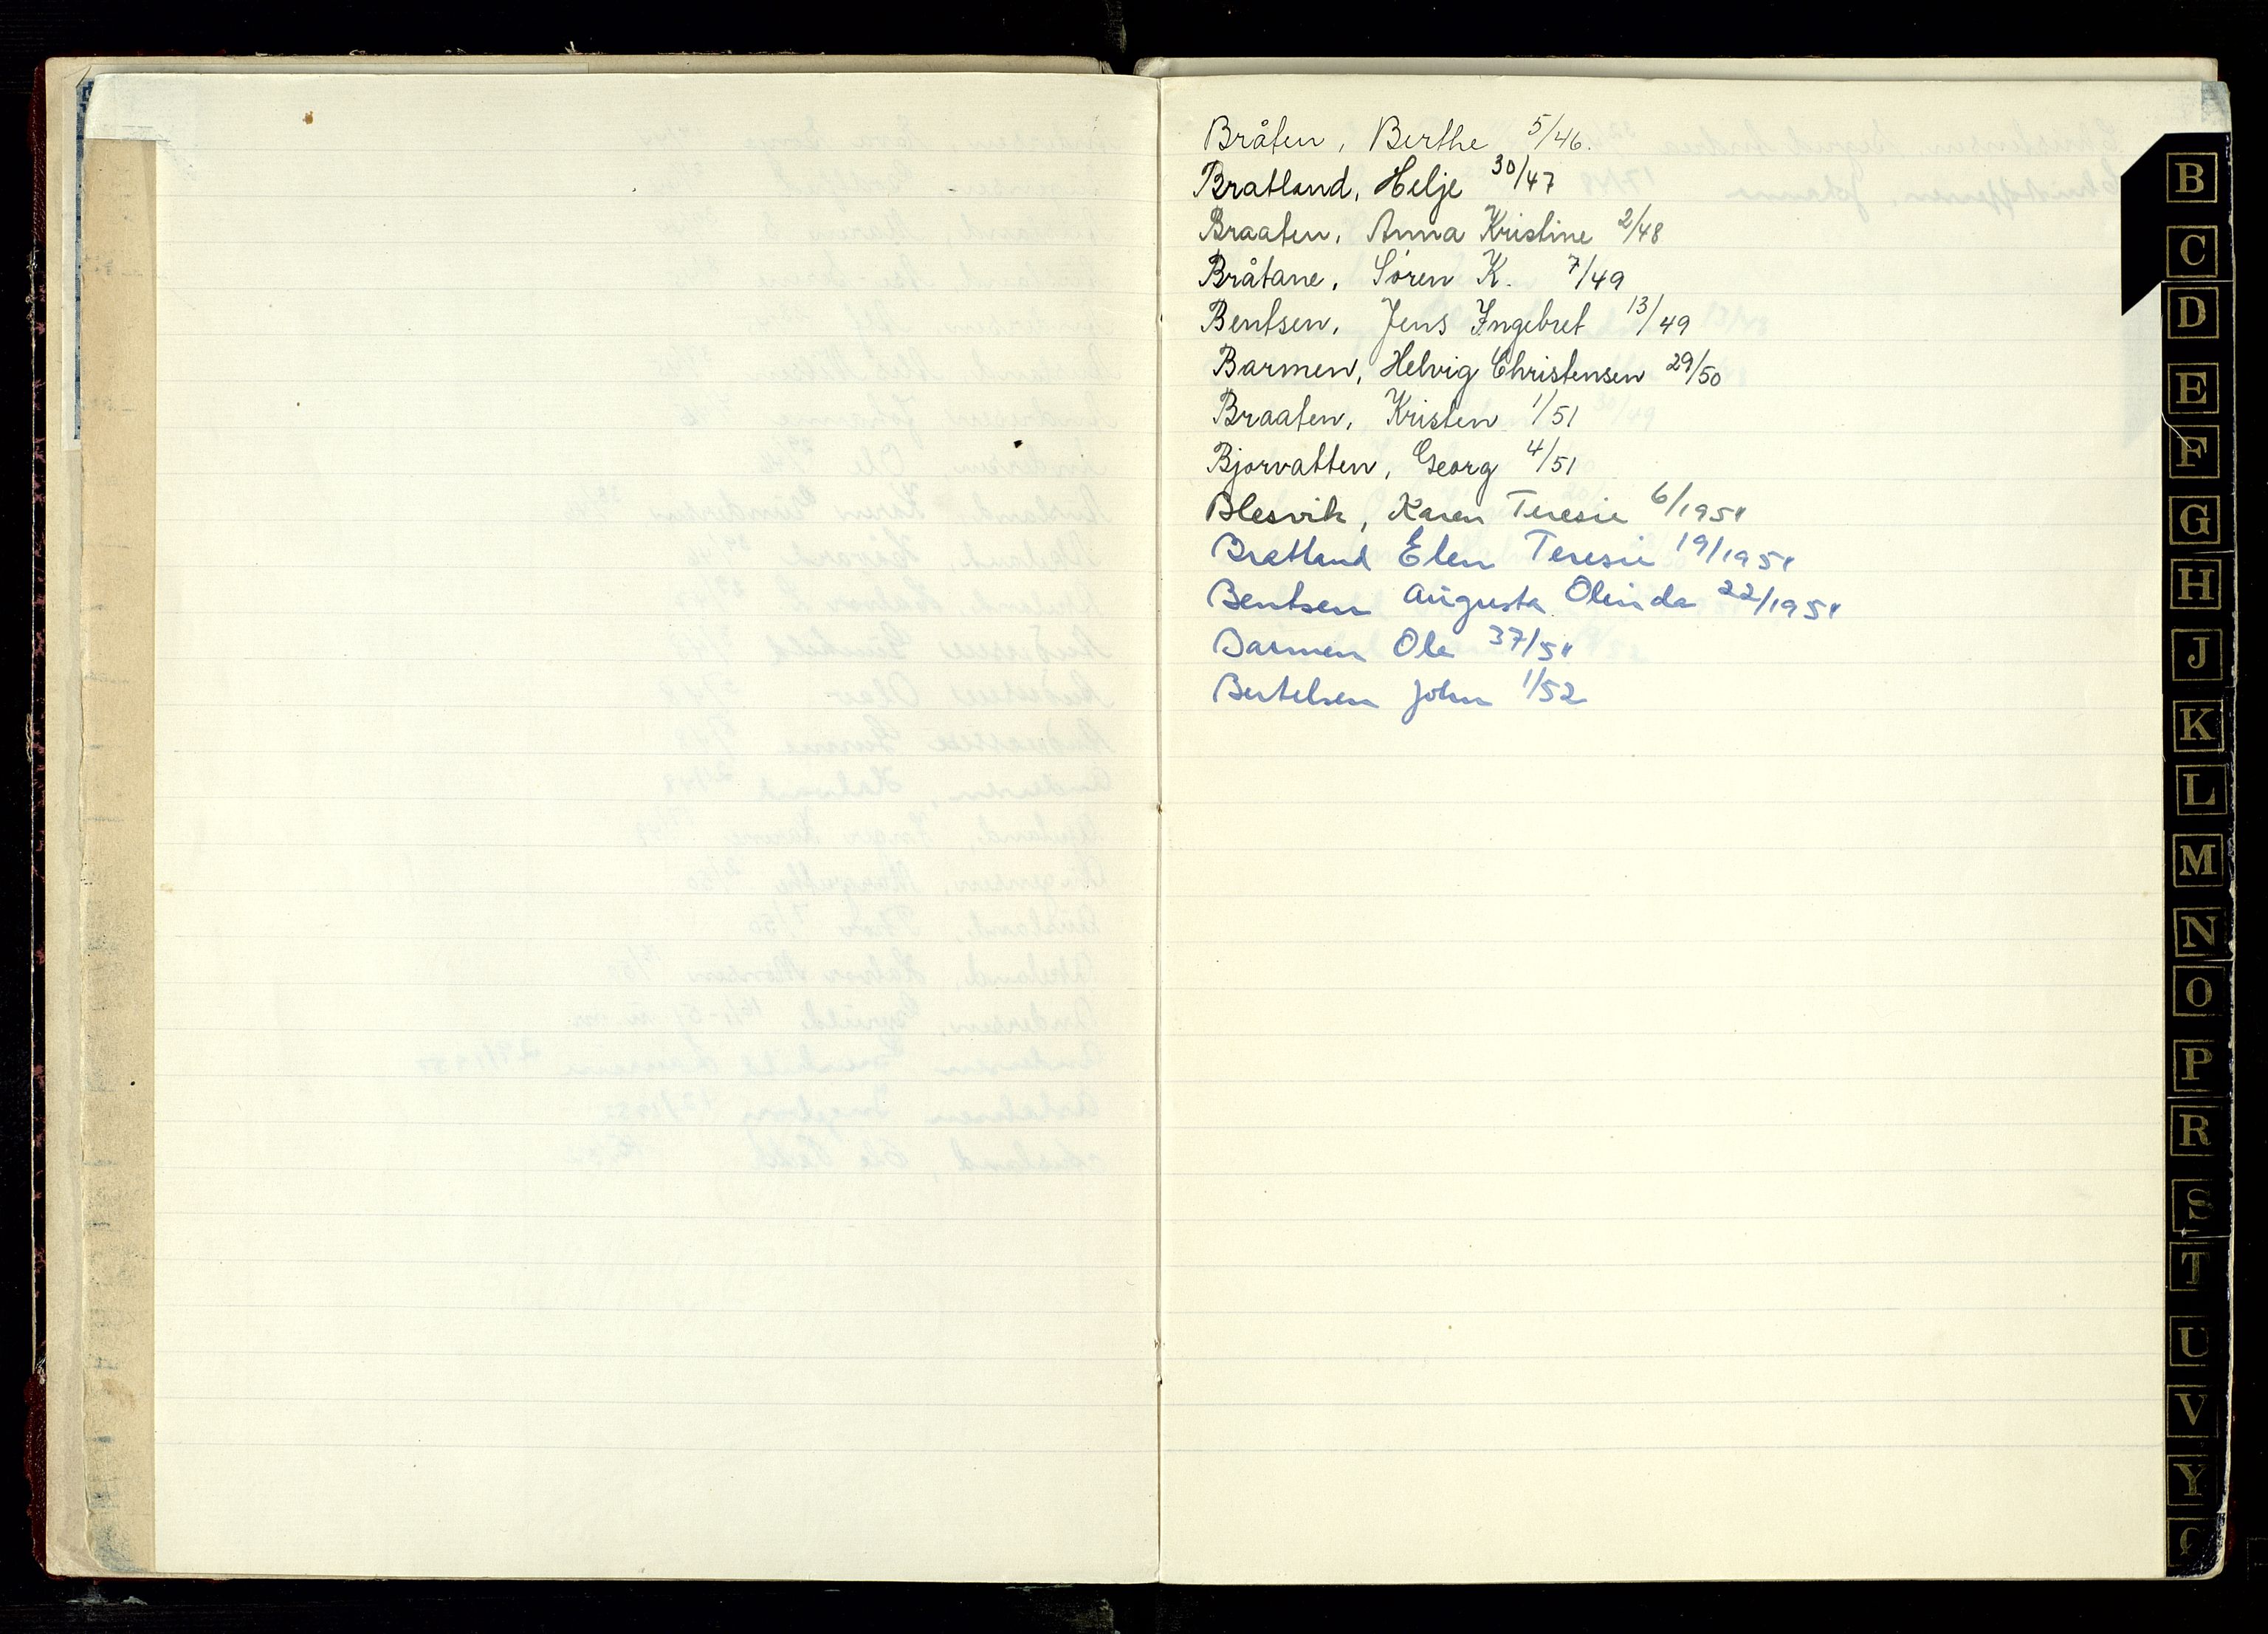 Bråten, Berthe 5/46.
Bratland, Helje 30/47
Braaten, Anna Kristine 2/48
Bråtane, Søren K. 7/49
Bentsen, Jens Ingebret 13/49
Barmen, Helvig Christensen 29/50
Braaten, Kristen 1/51
Bjorvatten, Georg 4/51
Blesvik, Karen Teresie 6/1951
Bratland Elen Teresie 19/1951
Bentsen Augusta Olinda 22/1951
Barmen Ole 37/51
Bertelsen John 1/52
B
C
D
E
F
G
H
J
K
L
M
N
O
P
R
S
T
U
V
Y